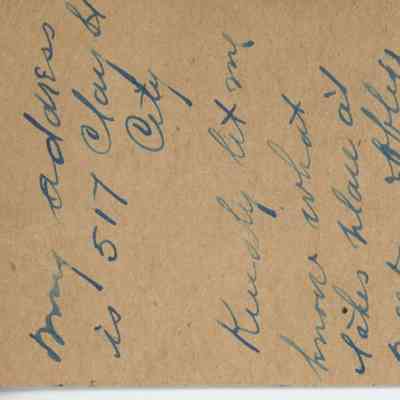 My address
is 517 Clay St
City
Kindly let me
know what
takes place at
office